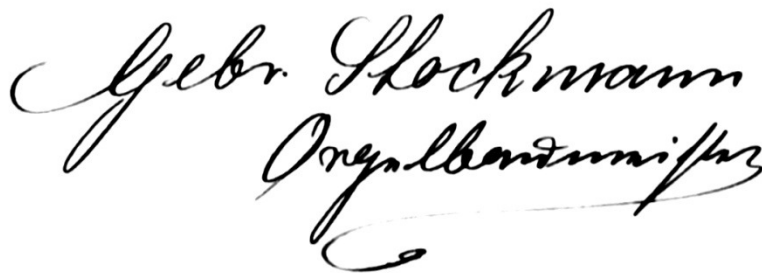 Gebr. Stockmann
Orgelbaumeister